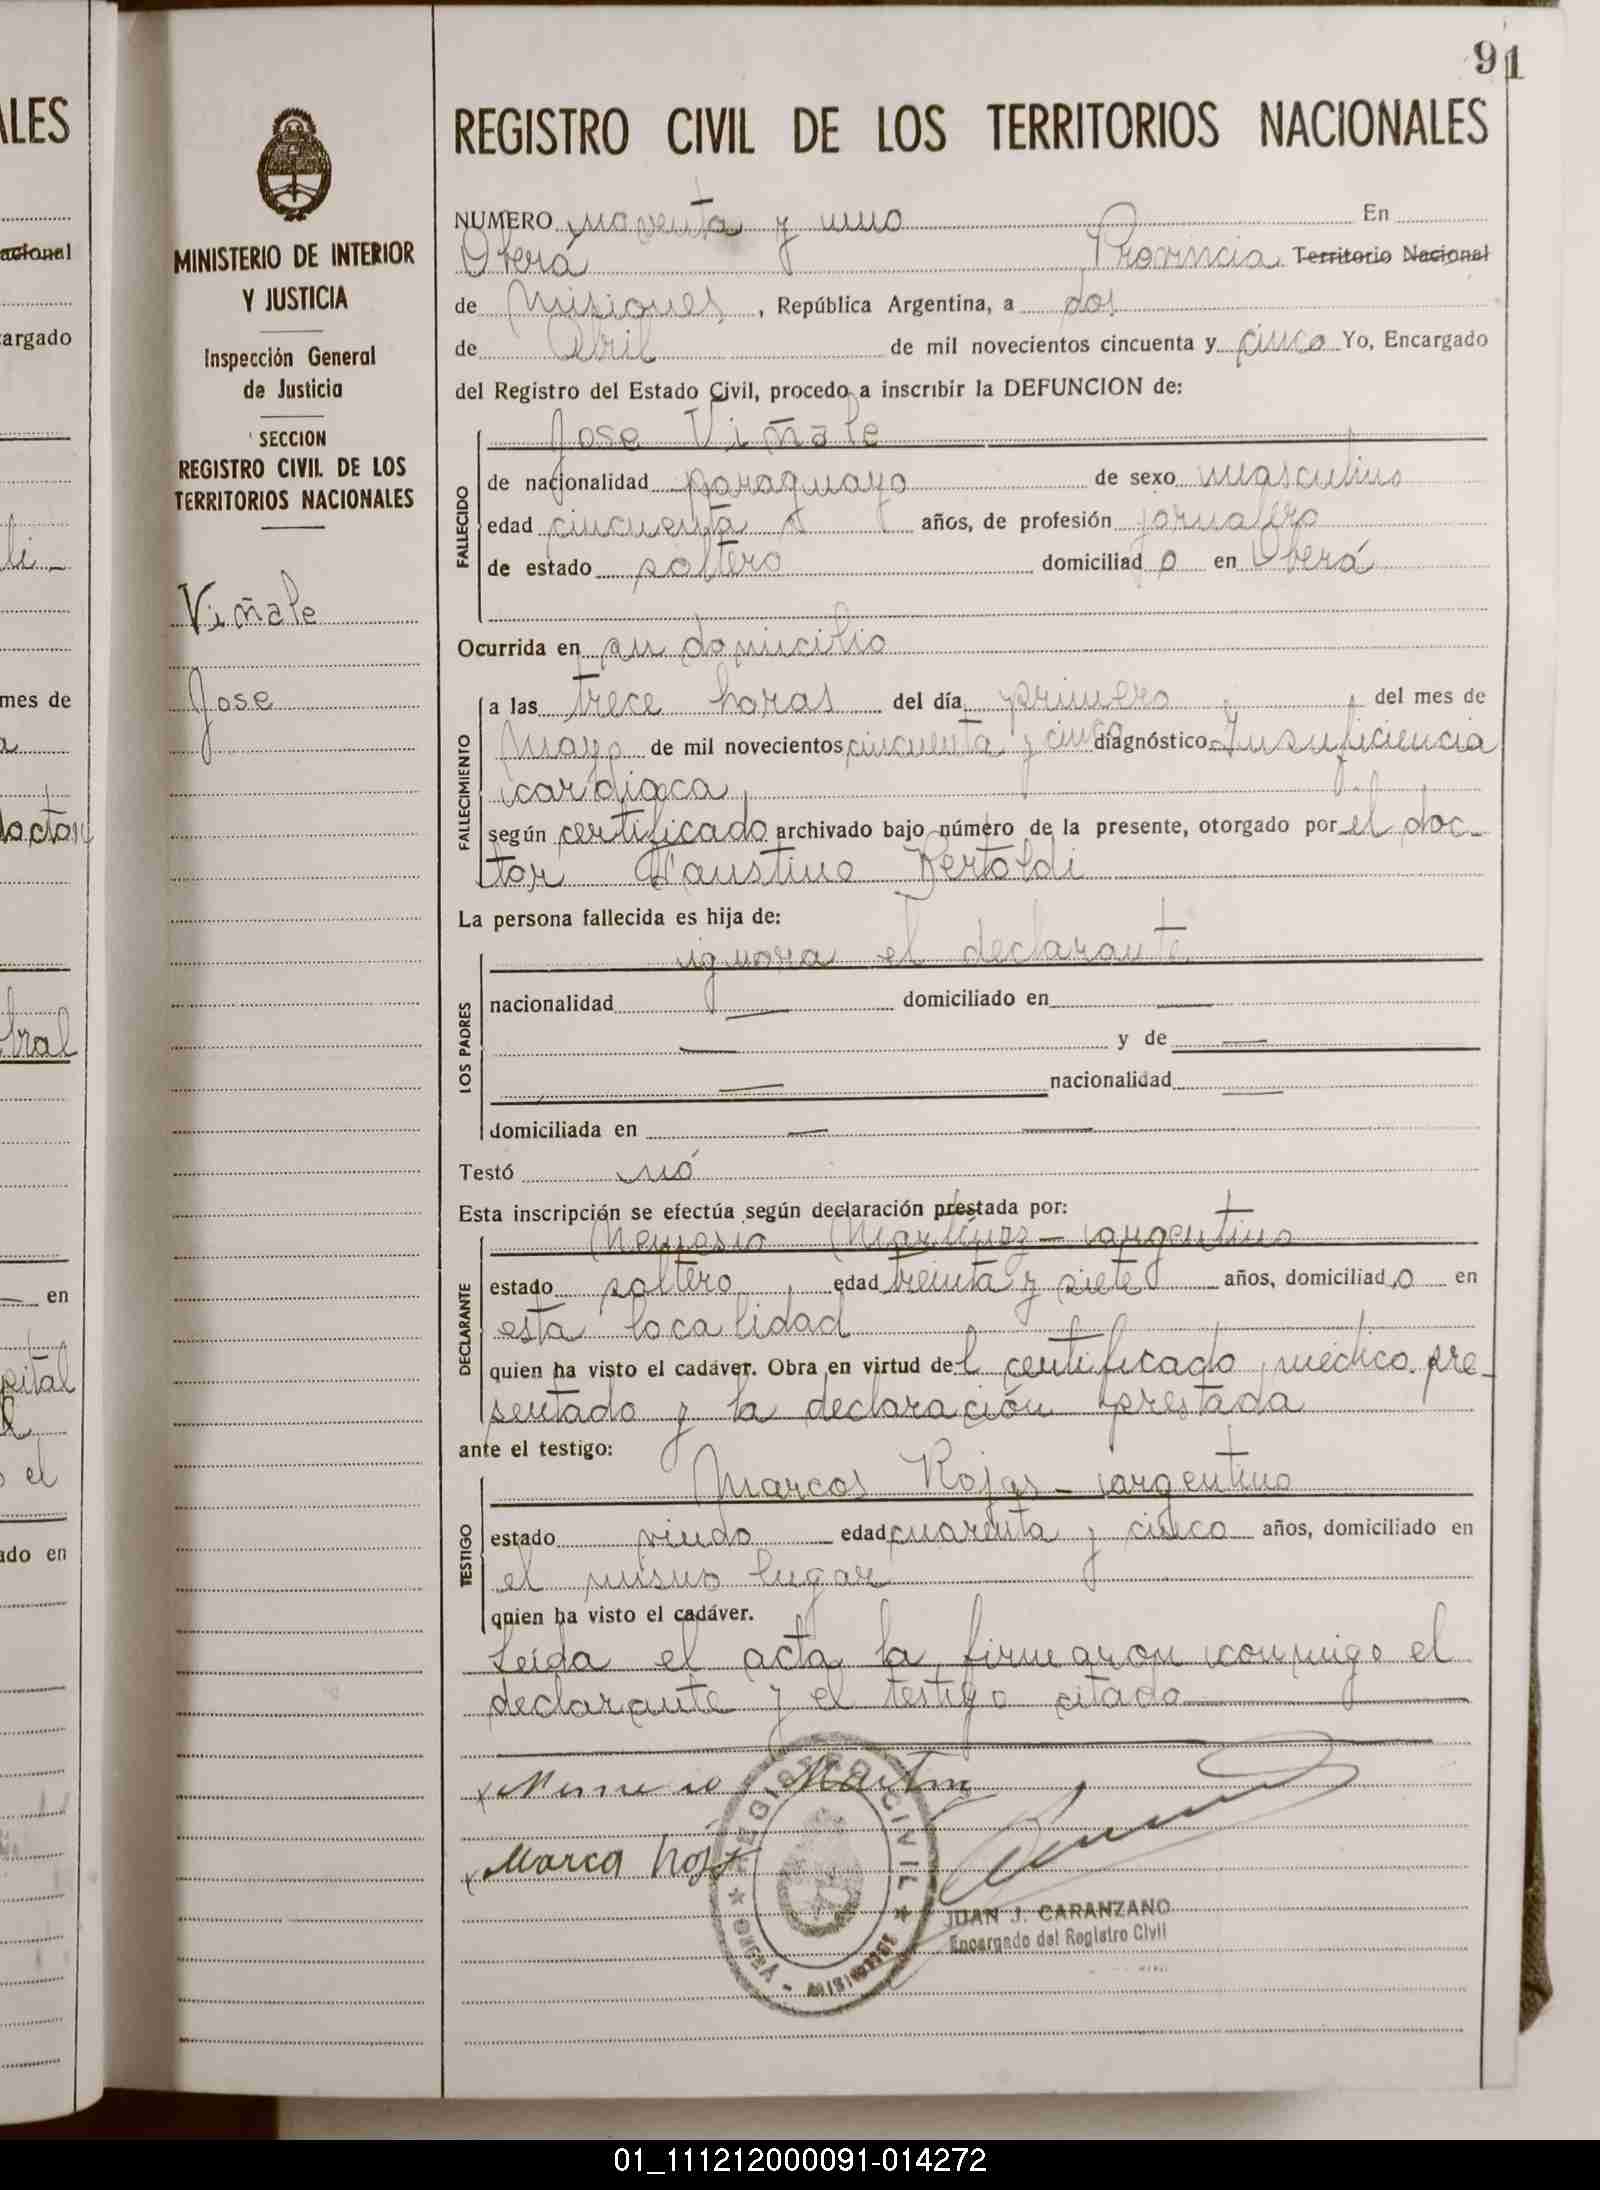 91
REGISTRO CIVIL DE LOS TERRITORIOS NACIONALES
MINISTERIO DE INTERIOR
Y JUSTICIA
Inspección General
de Justicia
SECCION
REGISTRO CIVIL DE LOS
TERRITORIOS NACIONALES
Viñale
Jose
NUMERO noventa y uno En
Oberá Provincia Territorio Nacional
de Misiones, República Argentina, a dos
de Abril de mil novecientos cincuenta y cinco Yo, Encargado
del Registro del Estado Civil, procedo a inscribir la DEFUNCION de:
Jose Viñale
FALLECIDO
de nacionalidad paraguayo de sexo masculino
edad cincuenta años, de profesión jornalero
de estado soltero domiciliado en Oberá
Ocurrida en su domicilio
FALLECIMIENTO
a las trece horas del día primero del mes de
Mayo de mil novecientos cincuenta y cinco diagnóstico Insuficiencia
cardiaca
según certificado archivado bajo número de la presente, otorgado por el doc-
tor Faustino Bertoldi
La persona fallecida es hija de:
ignora el declarante
LOS PADRES
nacionalidad — domiciliado en —
— y de —
— nacionalidad —
domiciliada en — —
Testó nó
Esta inscripción se efectúa según declaración prestada por:
Nemesio Martínez - argentino
DECLARANTE
estado soltero edad treinta y siete años, domiciliado en
esta localidad
quien ha visto el cadáver. Obra en virtud del certificado médico pre-
sentado y la declaración prestada
ante el testigo:
Marcos Rojas - argentino
TESTIGO
estado viudo edad cuarenta y cinco años, domiciliado en
el mismo lugar
quien ha visto el cadáver.
Leída el acta la firmaron conmigo el
declarante y el testigo citado
REGISTRO CIVIL
OBERA - MISIONES
JUAN J. CARANZANO
Encargado del Registro Civil
01_111212000091-014272